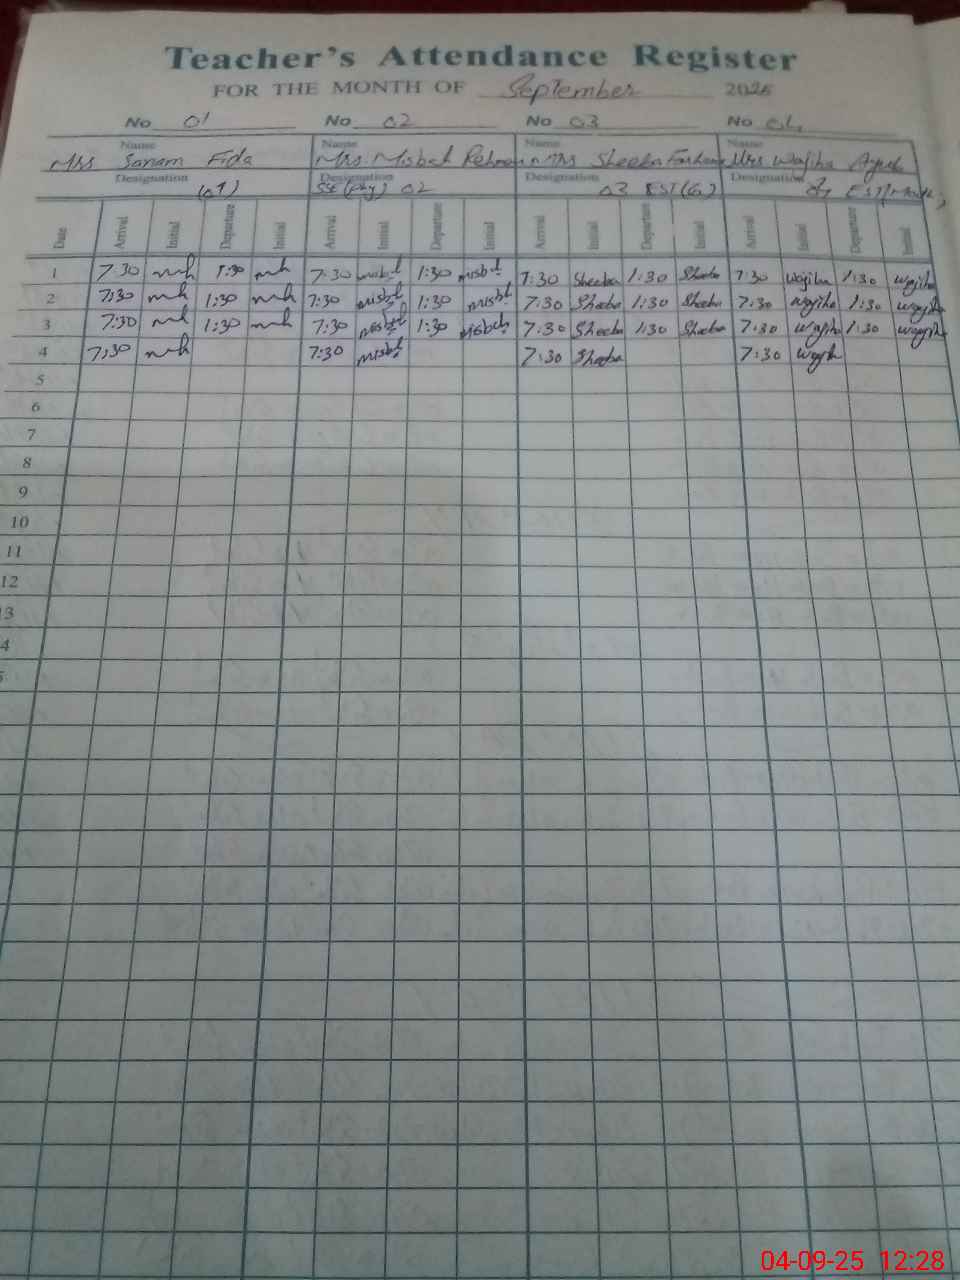 Teacher's Attendance Register
FOR THE MONTH OF September 2025
No 01 No 02 No 03 No 04
Name Name Name Name
Mrs Sanam Fida Mrs. Misbah Rehman Mrs Sheeba Farhana Mrs Wajiha Ayub
Designation Designation Designation Designation
(01) SSE (Phy) 02 03 EST(G) EST(Math)
Date Arrival Initial Departure Initial Arrival Initial Departure Initial Arrival Initial Departure Initial Arrival Initial Departure Initial
1 7:30 1:30 7:30 misbah 1:30 misbah 7:30 Sheeba 1:30 Sheeba 7:30 wajiha 1:30 wajiha
2 7:30 1:30 7:30 misbah 1:30 misbah 7:30 Sheeba 1:30 Sheeba 7:30 wajiha 1:30 wajiha
3 7:30 1:30 7:30 misbah 1:30 misbah 7:30 Sheeba 1:30 Sheeba 7:30 wajiha 1:30 wajiha
4 7:30 7:30 misbah 7:30 Sheeba 7:30 wajiha
5
6
7
8
9
10
11
12
3
4
5
04-09-25 12:28